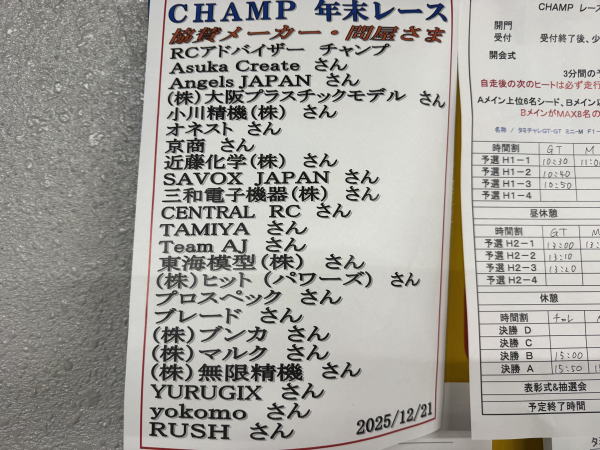 CHAMP 年末レース
協賛メーカー・問屋さま
RCアドバイザー チャンプ
Asuka Create さん
Angels JAPAN さん
(株)大阪プラスチックモデル さん
小川精機(株) さん
オネスト さん
京商 さん
近藤化学(株) さん
SAVOX JAPAN さん
三和電子機器(株) さん
CENTRAL RC さん
TAMIYA さん
Team AJ さん
東海模型(株) さん
(株)ヒット (パワーズ) さん
プロスペック さん
ブレード さん
(株)ブンカ さん
(株)マルク さん
(株)無限精機 さん
YURUGIX さん
yokomo さん
RUSH さん
2025/12/21
CHAMP レース
開門
受付 受付終後、少
開会式
3分間の予
自走後の次のヒートは必ず走行
Aメイン上位6名シード、Bメイン
BメインがMAX8名の
名称 / タミチャレGT-GT ミニ-M F1-
時間割 GT M
予選 H1-1 10:30 11:0
予選 H1-2 10:40
予選 H1-3 10:50
予選 H1-4
昼休憩
時間割 GT M
予選 H2-1 13:00 13:
予選 H2-2 13:10
予選 H2-3 13:20
予選 H2-4
休憩
時間割
決勝 D
決勝 C
決勝 B 15:00
決勝 A 15:50 15
表彰式&抽選会
予定終了時間